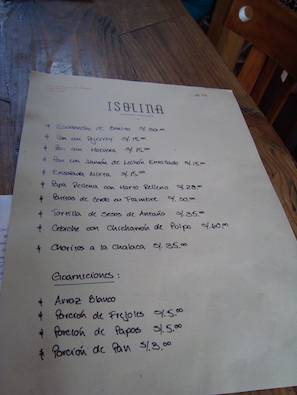 ISOLINA
+ Escabeche de Bonito S/.30.00
+ Pan con Pejerrey S/.15.00
+ Pan con S/.15.00
+ Pan con Jamón de Lechón Enrollado S/.15.00
+ Ensalada Mixta S/.15.00
+ Papa Rellena con Harto Relleno S/.28.00
+ Patitas de Cerdo en Fiambre S/.30.00
+ Tortilla de Sesos de Antaño S/.35.00
+ Cebiche con Chicharrón de Pulpo S/.60.00
+ Choritos a la Chalaca S/.35.00
Guarniciones :
+ Arroz Blanco
+ Porción de Frejoles S/.5.00
+ Porción de Papas S/.5.00
+ Porción de Pan S/.3.00